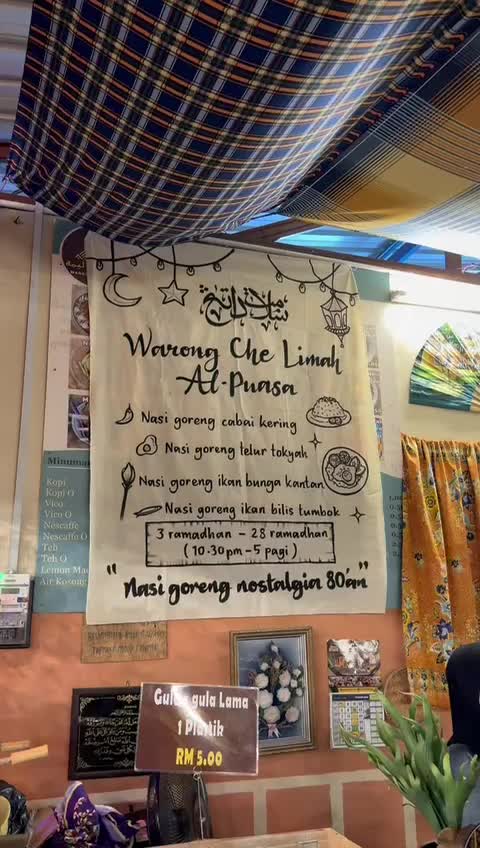 سلامت داتڠ
Warong Che Limah
Al-Puasa
Nasi goreng cabai kering
Nasi goreng telur tokyah
Nasi goreng ikan bunga kantan
Nasi goreng ikan bilis tumbok
3 ramadhan - 28 ramadhan
(10.30pm - 5 pagi)
"Nasi goreng nostalgia 80'an"
Minuman
Kopi
Kopi O
Vico
Vico O
Nescaffe
Nescaffe O
Teh
Teh O
Lemon
Air Kosong
Gula gula Lama
1 Plastik
RM 5.00